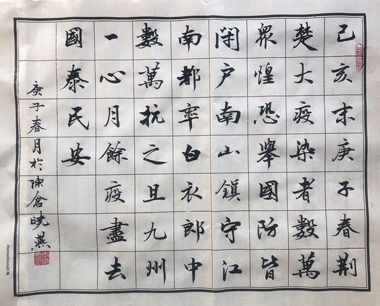 己亥末庚子春荆
楚大疫染者數萬
眾惶恐舉國防皆
閉户南山鎮守江
南都率白衣郎中
數萬抗之且九州
一心月餘疫盡去
國泰民安
庚子春月於陳倉曉燕